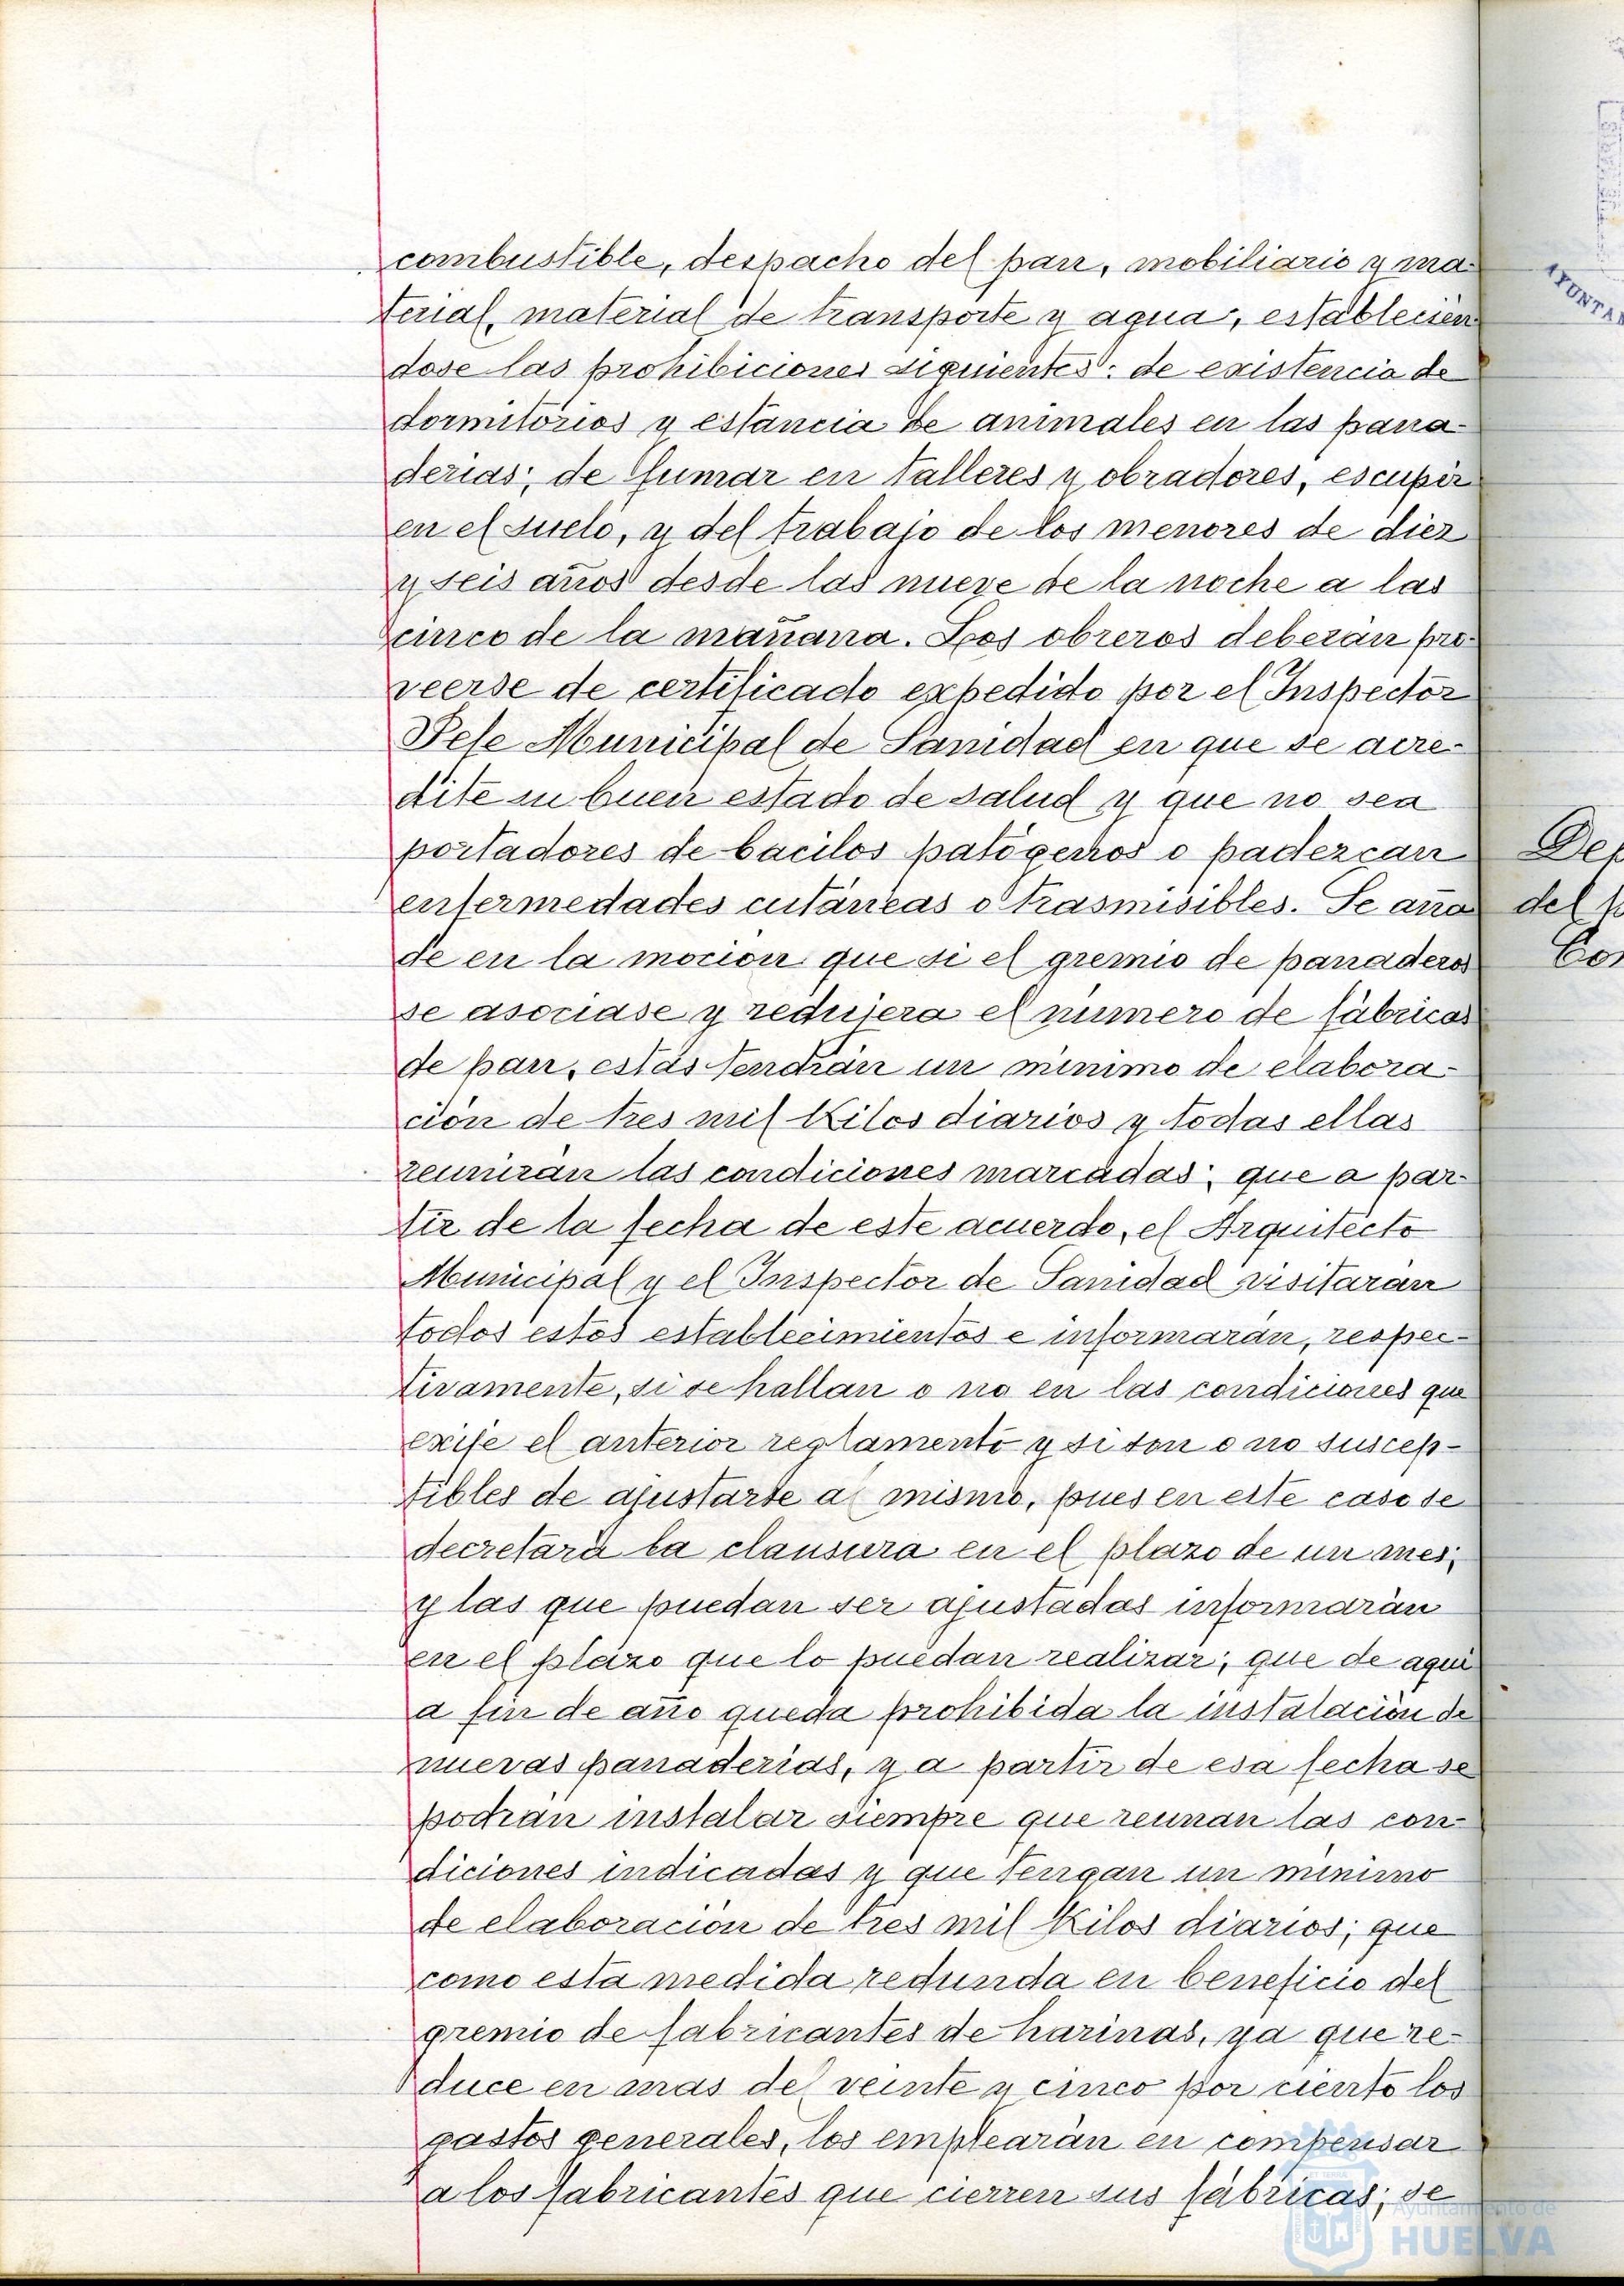 combustible, despacho del pan, mobiliario y ma-
terial, material de transporte y agua, establecién
dose las prohibiciones siguientes: de existencia de
dormitorios y estancia de animales en las pana-
derias; de fumar en talleres y obradores, escupir
en el suelo, y del trabajo de los menores de diez
y seis años desde las nueve de la noche a las
cinco de la mañana. Los obreros deberán pro-
veerse de certificado expedido por el Inspector
Jefe Municipal de Sanidad en que se acre-
dite su buen estado de salud y que no sea
portadores de bacilos patógenos o padezcan
enfermedades cutáneas o trasmisibles. Se aña
de en la moción que si el gremio de panaderos
se asociase y redujera el número de fábricas
de pan, estas tendrán un mínimo de elabora-
ción de tres mil Kilos diarios y todas ellas
reunirán las condiciones marcadas; que a par-
tir de la fecha de este acuerdo, el Arquitecto
Municipal y el Inspector de Sanidad visitarán
todos estos establecimientos e informarán, respec-
tivamente, si se hallan o no en las condiciones que
exije el anterior reglamento y si son o no suscep-
tibles de ajustarse al mismo, pues en este caso se
decretará la clausura en el plazo de un mes;
y las que puedan ser ajustadas informarán
en el plazo que lo puedan realizar; que de aquí
a fin de año queda prohibida la instalación de
nuevas panaderias, y a partir de esa fecha se
podrán instalar siempre que reunan las con-
diciones indicadas y que tengan un mínimo
de elaboración de tres mil Kilos diarios; que
como esta medida redunda en beneficio del
gremio de fabricantes de harinas, ya que re-
duce en mas del veinte y cinco por ciento los
gastos generales, los emplearán en compensar
a los fabricantes que cierren sus fábricas; se
AYUNTA
De
del
Ayuntamiento de
HUELVA